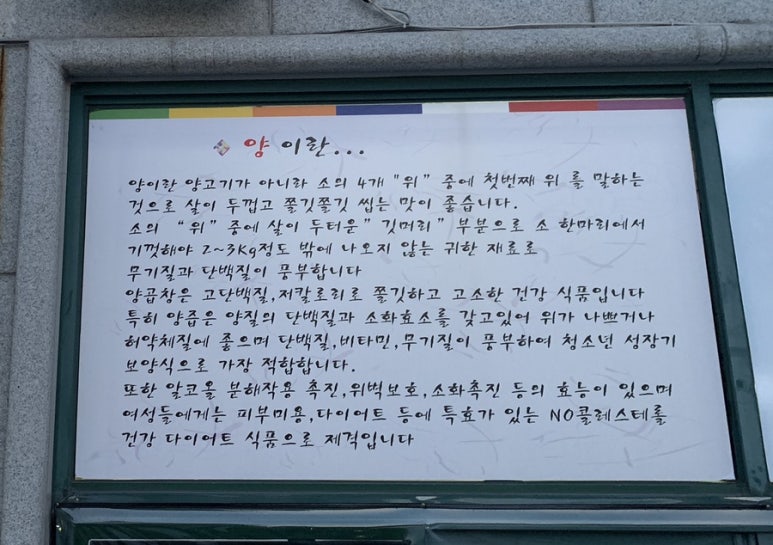 양이란...
양이란 양고기가 아니라 소의 4개 "위" 중에 첫번째 위 를 말하는
것으로 살이 두껍고 쫄깃쫄깃 씹는 맛이 좋습니다.
소의 "위" 중에 살이 두터운" 깃머리" 부분으로 소 한마리에서
기껏해야 2~3Kg정도 밖에 나오지 않는 귀한 재료로
무기질과 단백질이 풍부합니다
양곱창은 고단백질,저칼로리로 쫄깃하고 고소한 건강 식품입니다
특히 양즙은 양질의 단백질과 소화효소를 갖고있어 위가 나쁘거나
허약체질에 좋으며 단백질,비타민,무기질이 풍부하여 청소년 성장기
보양식으로 가장 적합합니다.
또한 알코올 분해작용 촉진,위벽보호,소화촉진 등의 효능이 있으며
여성들에게는 피부미용,다이어트 등에 특효가 있는 NO콜레스테롤
건강 다이어트 식품으로 제격입니다